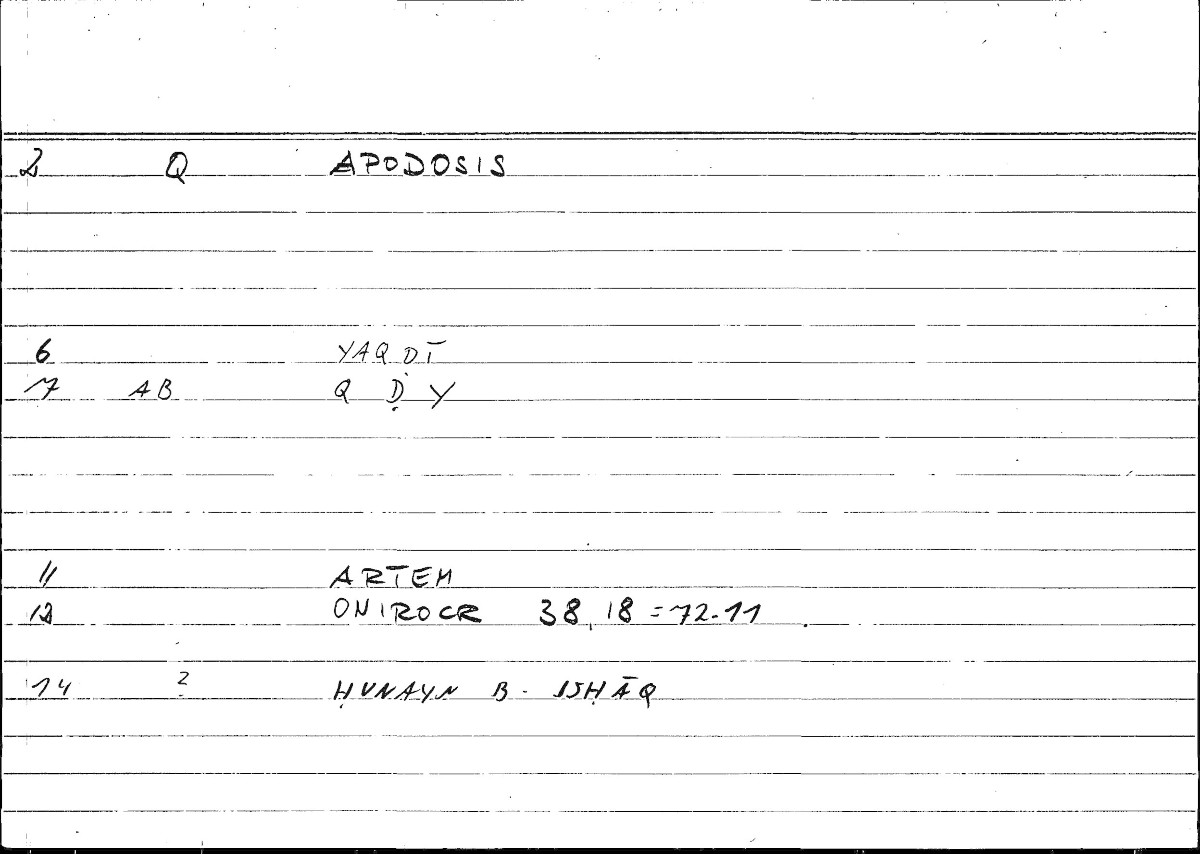 2 Q APODOSIS
6 YAQḌĪ
7 AB Q Ḍ Y
11 ARTEM
12 ONIROCR 38,18 = 72.11
14 2 ḤUNAYN B. ISḤĀQ